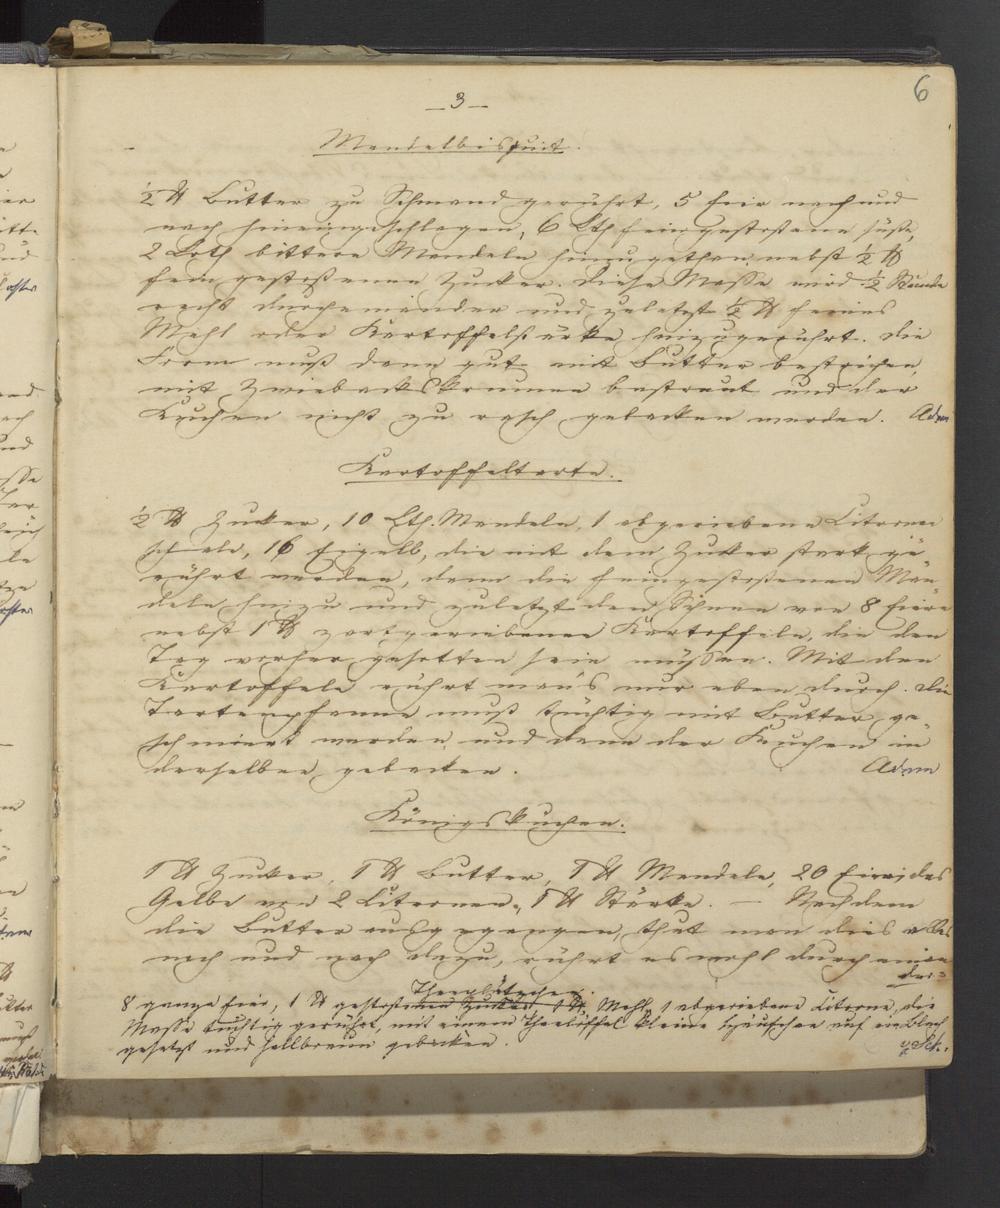 6
—3—
Mandelbisquit.
½ ℔ Butter zu Schmand gerührt, 5 Eier nach und
nach hineingeschlagen, 6 Lth fein gestoßene süße,
2 Loth bittere Mandeln hinzu gethan, nebst ½ ℔
fein gestoßenen Zucker. Diese Masse wird ½ Stunde
recht durcheinander und zuletzt ½ ℔ feines
Mehl oder Kartoffelstärke hinzugerührt. Die
Form muß dann gut mit Butter bestrichen,
mit Zwiebackskrumen bestreut und der
Kuchen nicht zu rasch gebacken werden. Adm
Kartoffeltorte.
½ ℔ Zucker, 10 Lth. Mandeln, 1 abgeriebene Citronen
schale, 16 Eigelb, die mit dem Zucker stark ge
rührt werden, dann die feingestoßenen Man
deln hinzu und zuletzt den Schnee von 8 Eiern
nebst 1 ℔ zartgeriebenen Kartoffeln, die den
Tag vorher gesotten sein müssen. Mit den
Kartoffeln rührt man's nur eben durch. Die
Tortenpfanne muß tüchtig mit Butter ge-
schmiert werden und dann der Kuchen in
derselben gebacken. Adm
Königskuchen.
1 ℔ Zucker, 1 ℔ Butter, 1 ℔ Mandeln, 20 Eier, das
Gelbe von 2 Citronen, 1 ℔ Stärke. — Nachdem
die Butter ausgegangen, thut man dies alles
nach und nach dazu, rührt es wohl durch einan
der.
Theeplätzchen.
8 ganze Eier, 1 ℔ gestoßenen Zucker, 1 ℔ Mehl, 1 abgeriebene Citrone, die
Masse tüchtig gerührt, mit einem Theelöffel kleine Häufchen auf ein Blech
gesetzt und hellbraun gebacken. v. Sch.